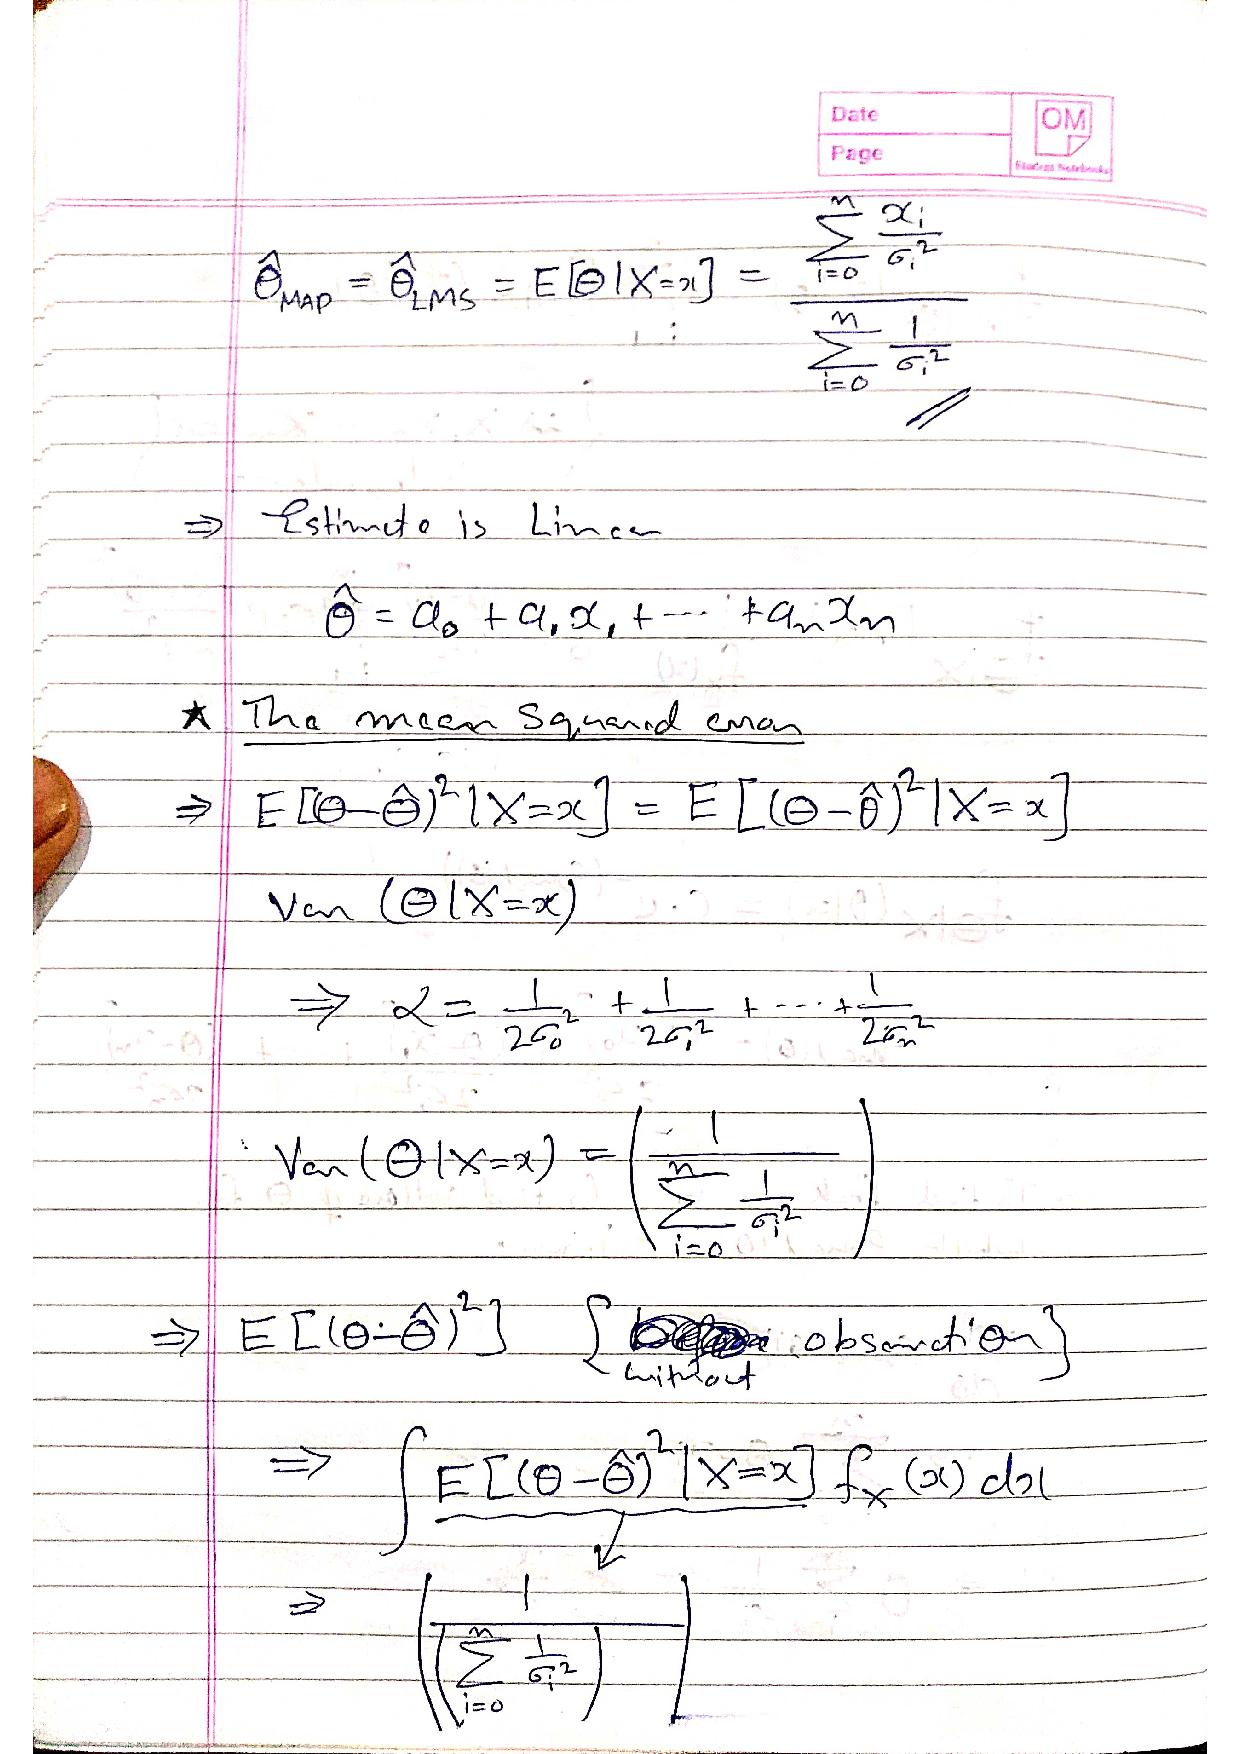 Date
OM
Page
Student Notebooks
θ̂_MAP = θ̂_LMS = E[Θ|X=x] = (∑_{i=0}^{n} x_i/σ_i²) / (∑_{i=0}^{n} 1/σ_i²)
⇒ Estimate is Linear
θ̂ = a₀ + a₁x₁ + --- + aₙxₙ
★ The mean squared error
⇒ E[(Θ-Θ̂)²|X=x] = E[(Θ-θ̂)²|X=x]
Var (Θ|X=x)
⇒ α = 1/2σ₀² + 1/2σ₁² + ---- + 1/2σₙ²
Var(Θ|X=x) = (1 / ∑_{i=0}^{n} 1/σ_i²)
⇒ E[(Θ-Θ̂)²] { without observation}
⇒ ∫ E[(Θ-θ̂)²|X=x] f_X(x) dx
⇒ (1 / (∑_{i=0}^{n} 1/σ_i²))